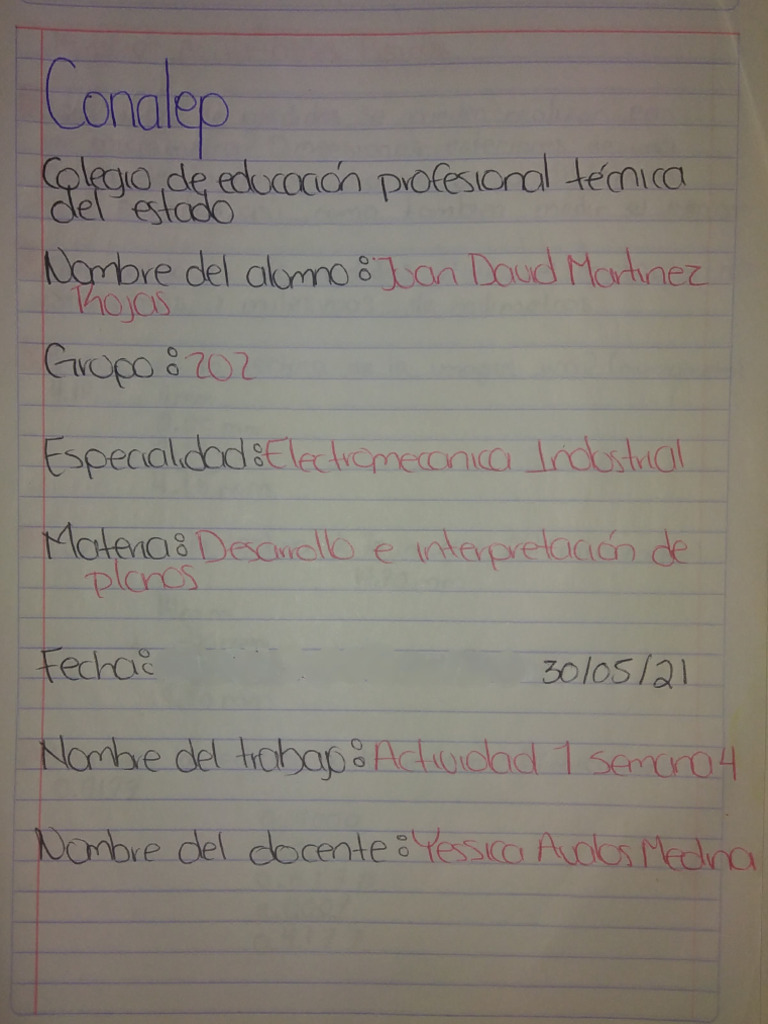 Conalep
Colegio de educación profesional técnica
del estado
Nombre del alumno: Juan David Martinez
Rojas
Grupo: 202
Especialidad: Electromecanica Industrial
Materia: Desarrollo e interpretación de
planos
Fecha: 30/05/21
Nombre del trabajo: Actividad 1 semana 4
Nombre del docente: Yessica Avalos Medina